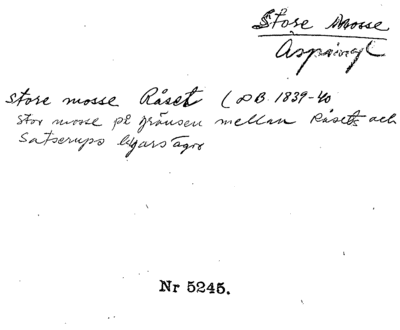 Store Mosse
Äspinge
store mosse Råset (DB. 1839-40
stor mosse på gränsen mellan Råsets och
Satserups byars ägor
Nr 5245.